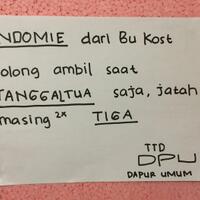 NDOMIE dari Bu Kost
olong ambil saat
TANGGALTUA saja, jatah
masing 2x TIGA
TTD
DPU
DAPUR UMUM